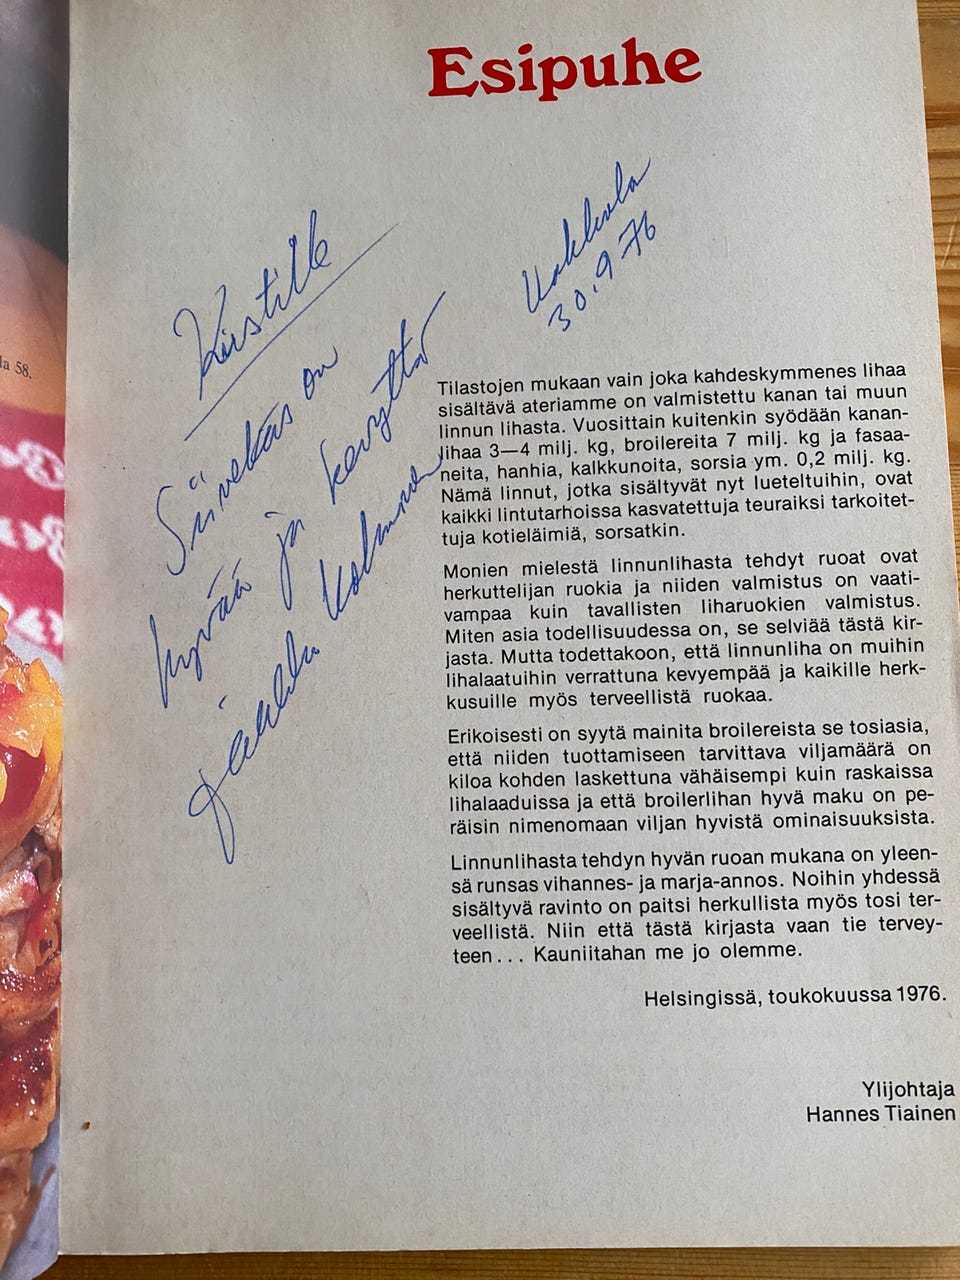 Esipuhe
Kirstille
Kokkola
30.9.76
Siivekäs on
hyvää ja kevyttä
Jaakko Kolmonen
Tilastojen mukaan vain joka kahdeskymmenes lihaa
sisältävä ateriamme on valmistettu kanan tai muun
linnun lihasta. Vuosittain kuitenkin syödään kanan-
lihaa 3—4 milj. kg, broilereita 7 milj. kg ja fasaa-
neita, hanhia, kalkkunoita, sorsia ym. 0,2 milj. kg.
Nämä linnut, jotka sisältyvät nyt lueteltuihin, ovat
kaikki lintutarhoissa kasvatettuja teuraiksi tarkoitet-
tuja kotieläimiä, sorsatkin.
Monien mielestä linnunlihasta tehdyt ruoat ovat
herkuttelijan ruokia ja niiden valmistus on vaati-
vampaa kuin tavallisten liharuokien valmistus.
Miten asia todellisuudessa on, se selviää tästä kir-
jasta. Mutta todettakoon, että linnunliha on muihin
lihalaatuihin verrattuna kevyempää ja kaikille herk-
kusuille myös terveellistä ruokaa.
Erikoisesti on syytä mainita broilereista se tosiasia,
että niiden tuottamiseen tarvittava viljamäärä on
kiloa kohden laskettuna vähäisempi kuin raskaissa
lihalaaduissa ja että broilerlihan hyvä maku on pe-
räisin nimenomaan viljan hyvistä ominaisuuksista.
Linnunlihasta tehdyn hyvän ruoan mukana on yleen-
sä runsas vihannes- ja marja-annos. Noihin yhdessä
sisältyvä ravinto on paitsi herkullista myös tosi ter-
veellistä. Niin että tästä kirjasta vaan tie tervey-
teen... Kauniitahan me jo olemme.
Helsingissä, toukokuussa 1976.
Ylijohtaja
Hannes Tiainen
la 58.